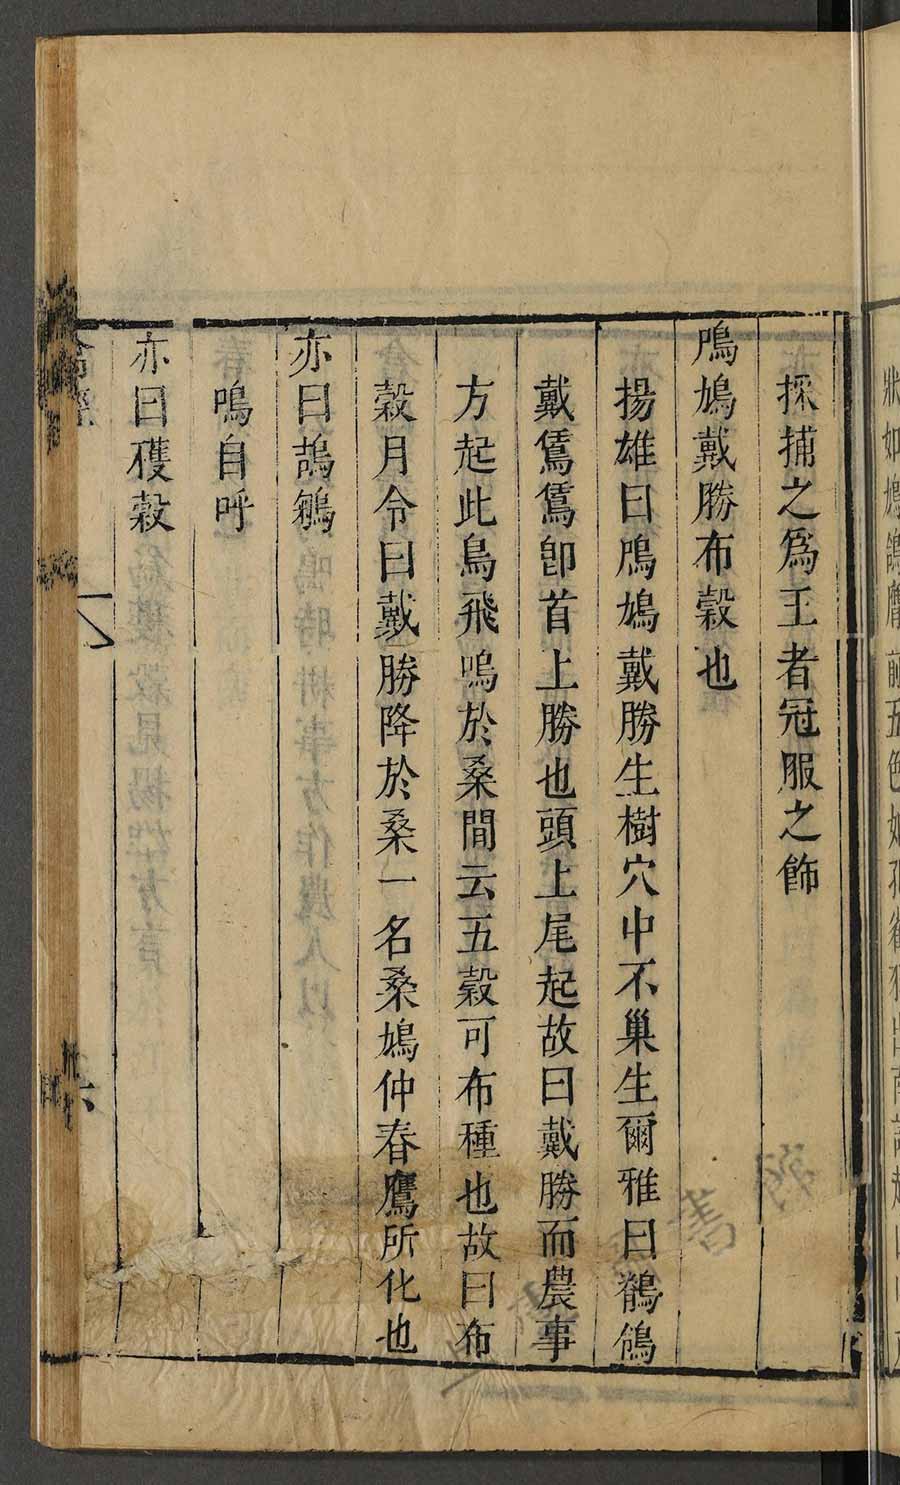 採捕之爲王者冠服之飾
鳲鳩戴勝布穀也
揚雄曰鳲鳩戴勝生樹穴中不巢生爾雅曰鶺鴒
戴鵀鵀卽首上勝也頭上尾起故曰戴勝而農事
方起此鳥飛鳴於桑間云五穀可布種也故曰布
穀月令曰戴勝降於桑一名桑鳩仲春鷹所化也
亦曰鴶鵴
鳴自呼
亦曰穫穀